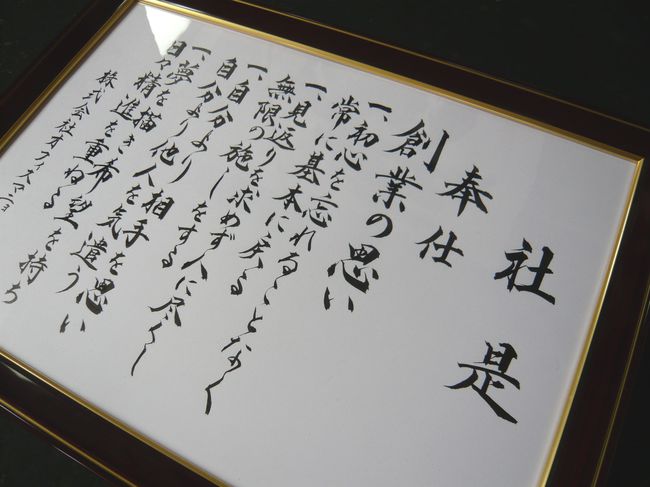 社是
奉仕
創業の思い
一、初心を忘れることなく
常に基本に戻る
一、見返りを求めず人に尽くし
無限の施しをする
一、自分より他人相手を思い
自分より気遣う
一、夢を描き希望を持ち
日々精進を重ねる
株式会社オフスマ